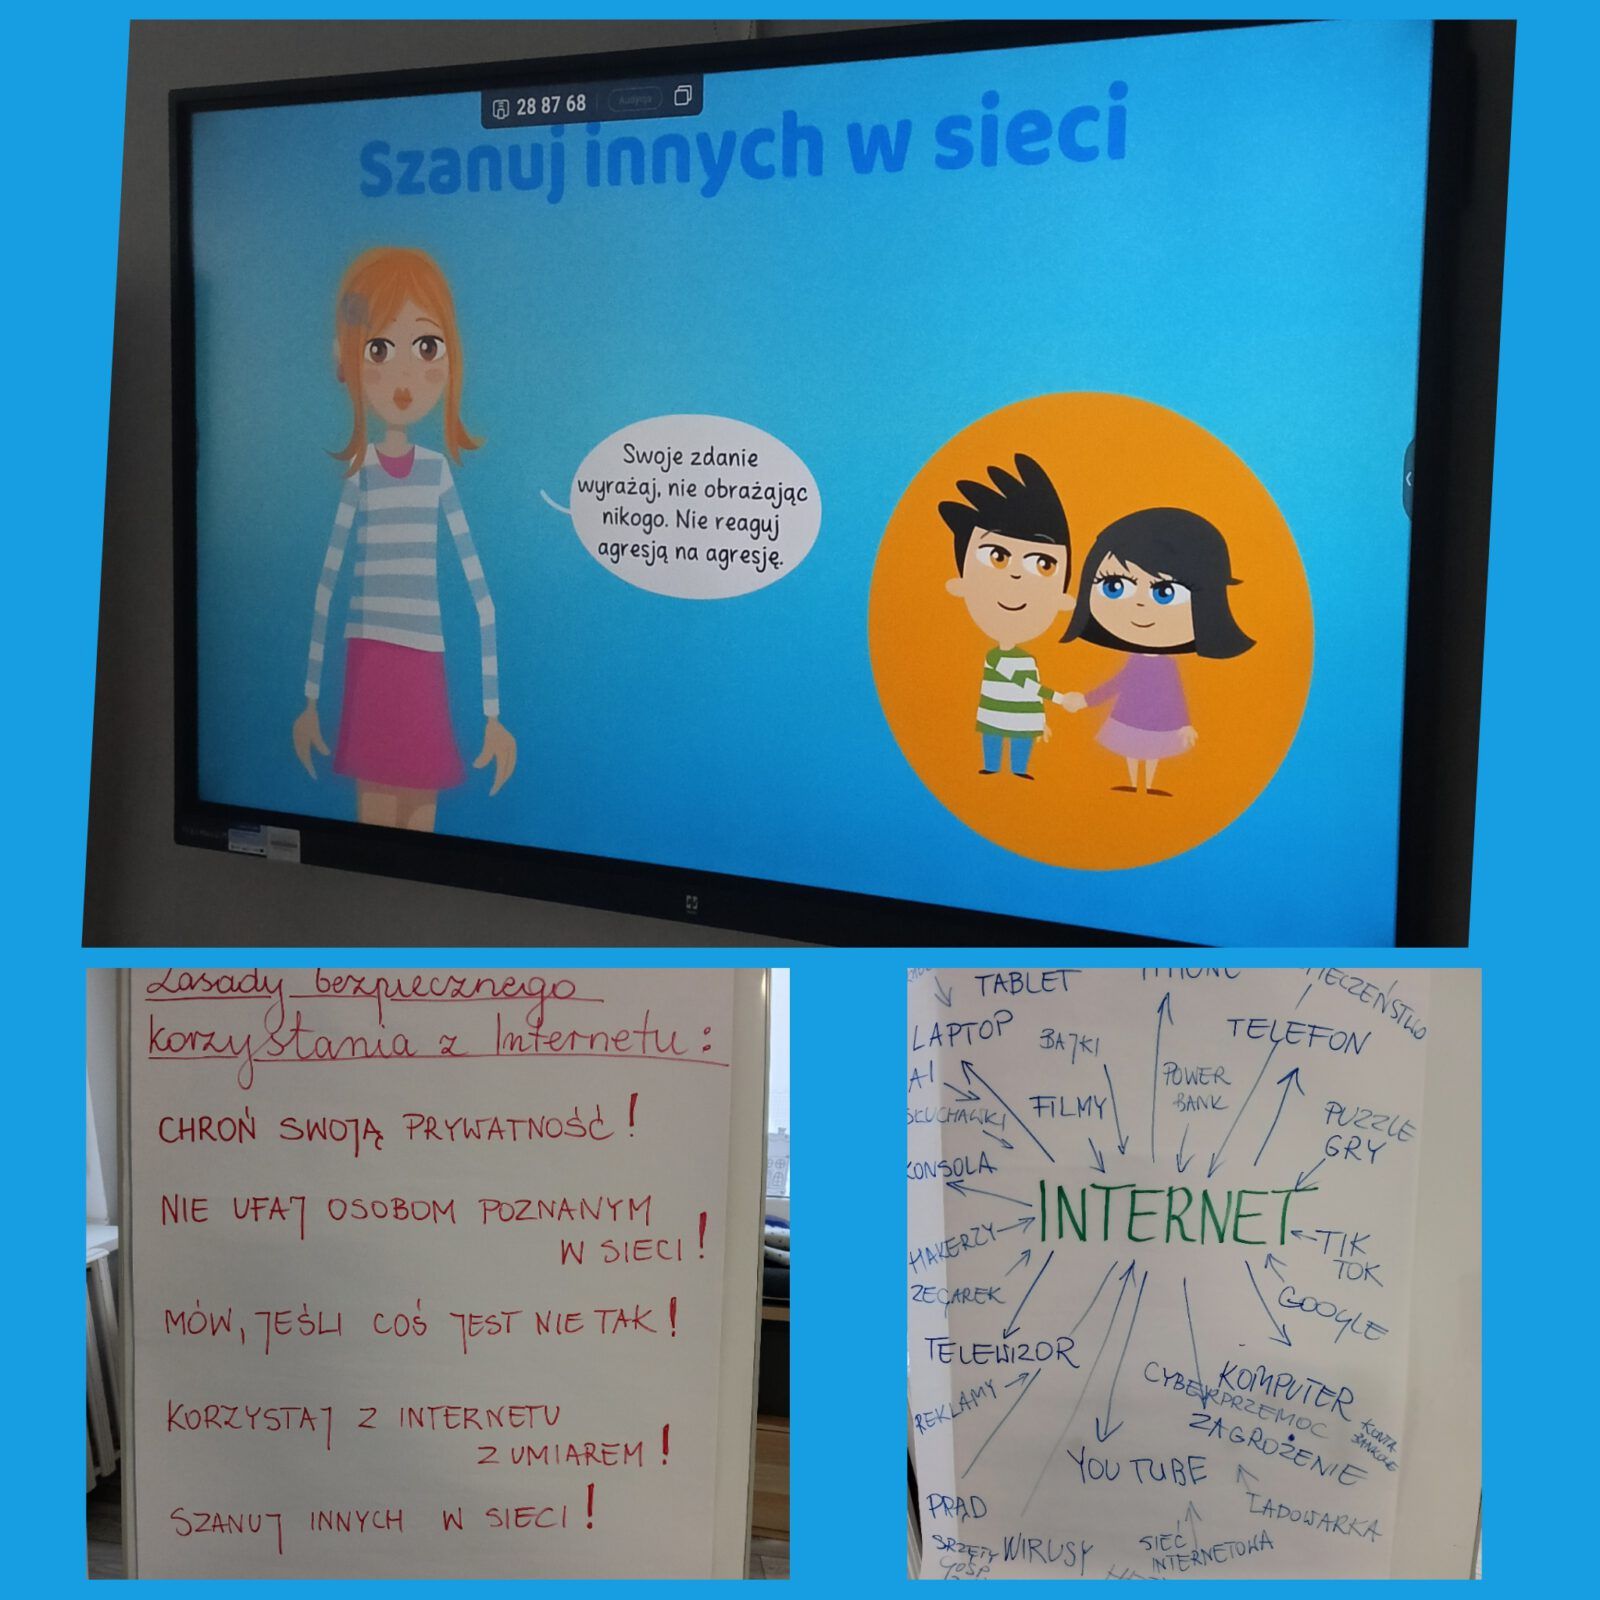 28 87 68
Audycja
Szanuj innych w sieci
Swoje zdanie
wyrażaj, nie obrażając
nikogo. Nie reaguj
agresją na agresję.
Zasady bezpiecznego
korzystania z Internetu:
CHROŃ SWOJĄ PRYWATNOŚĆ!
NIE UFAJ OSOBOM POZNANYM
W SIECI!
MÓW, JEŚLI COŚ JEST NIE TAK!
KORZYSTAJ Z INTERNETU
Z UMIAREM!
SZANUJ INNYCH W SIECI!
TABLET
LAPTOP
BAJKI
TELEFON
AI
SŁUCHAWKI
FILMY
POWER
BANK
PUZZLE
GRY
KONSOLA
INTERNET
HAKERZY
TIK
TOK
ZEGAREK
GOOGLE
TELEWIZOR
KOMPUTER
REKLAMY
CYBERPRZEMOC
ZAGROŻENIE
KONTA
BANKOWE
YOU TUBE
ŁADOWARKA
PRĄD
SPRZĘTY
GOSP.
WIRUSY
SIEĆ
INTERNETOWA